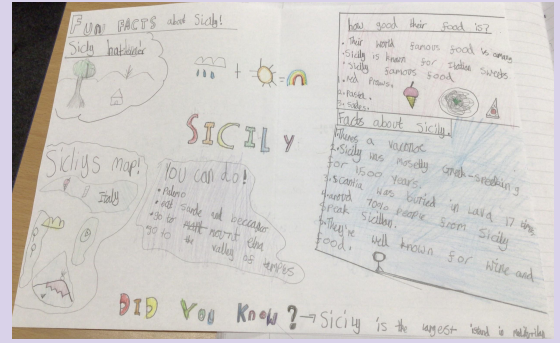 FUN FACTS about Sicily!
Sicily
SICILY
Siciliys map!
Italy
You can do!
• eat
• go to mount etna
go to the valley of temples
how good their food is?
• Their world famous food is among
• Sicily is known for Italian sweets
• Sicily famous food
1. Red Prawns.
2.
3.
Facts about Sicily.
Theres a
1. Sicily was greek-speaking
for 1500 years.
was buried in lava 17 times
70% people from Sicily
speak Sicilian.
They're well known for wine and
food.
DID YOU KNOW? → Sicily is the largest island in